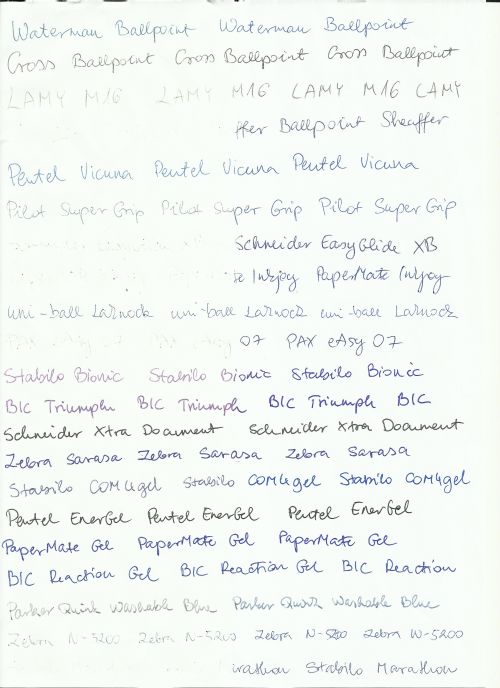 Waterman Ballpoint Waterman Ballpoint
Cross Ballpoint Cross Ballpoint Cross Ballpoint
LAMY M16 LAMY M16 LAMY M16 LAMY
ffer Ballpoint Sheaffer
Pentel Vicuna Pentel Vicuna Pentel Vicuna
Pilot Super Grip Pilot Super Grip Pilot Super Grip
Schneider EasyGlide XB
Inkjoy PaperMate Inkjoy
uni-ball Laknock uni-ball Laknock uni-ball Laknock
07 PAX eAsy 07
Stabilo Bionic Stabilo Bionic Stabilo Bionic
BIC Triumph BIC Triumph BIC Triumph BIC
Schneider Xtra Document Schneider Xtra Document
Zebra Sarasa Zebra Sarasa Zebra Sarasa
Stabilo COM4gel Stabilo COM4gel Stabilo COM4gel
Pentel EnerGel Pentel EnerGel Pentel EnerGel
PaperMate Gel PaperMate Gel PaperMate Gel
BIC Reaction Gel BIC Reaction Gel BIC Reaction
Parker Quink Washable Blue Parker Quink Washable Blue
Zebra N-5200 Zebra N-5200 Zebra N-5200 Zebra N-5200
rathon Stabilo Marathon